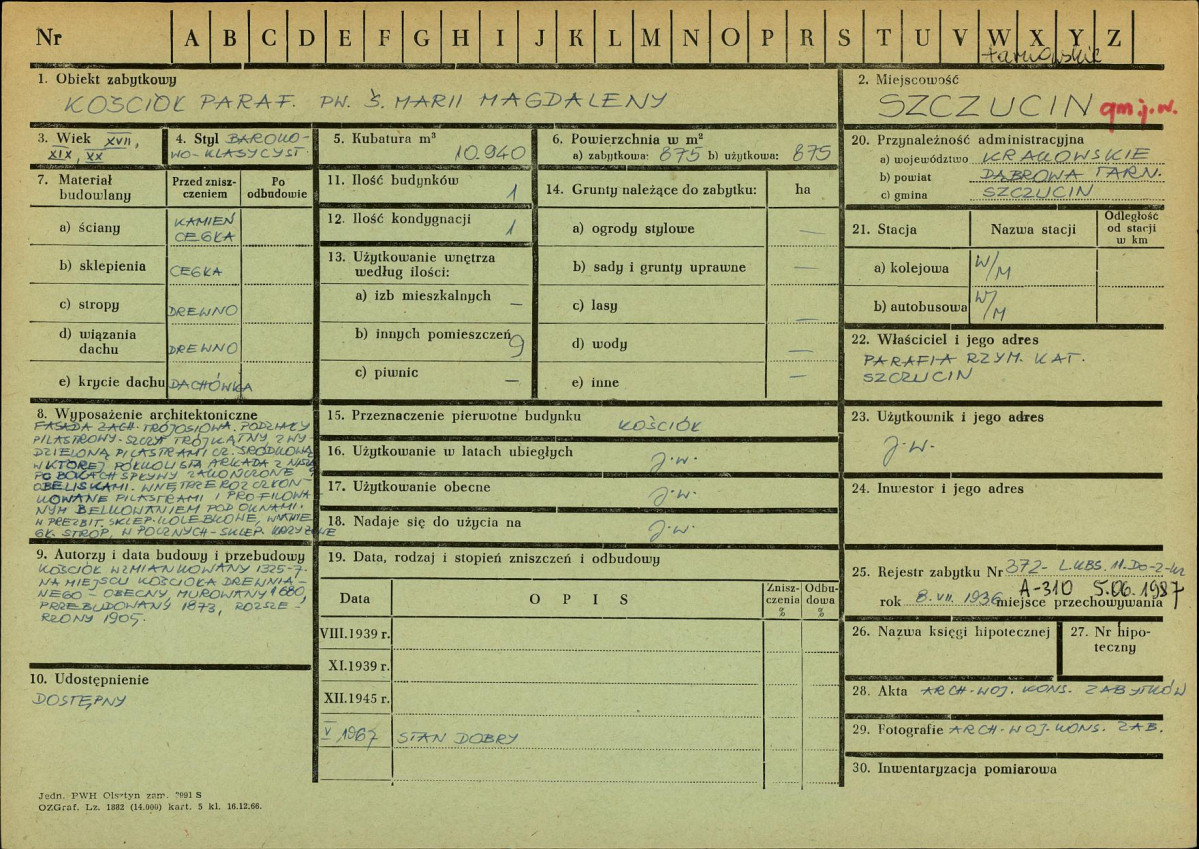 Nr A B C D E F G H I J K L M N O P R S T U V W X Y Z
tarnowskie
1. Obiekt zabytkowy
KOŚCIÓŁ PARAF. PW. Ś. MARII MAGDALENY
2. Miejscowość
SZCZUCIN gm.j.w.
3. Wiek XVII,
XIX, XX
4. Styl BAROKO-
WO-KLASYCYST
5. Kubatura m³
10.940
6. Powierzchnia w m²
a) zabytkowa: 875 b) użytkowa: 875
7. Materiał budowlany
Przed zniszczeniem
Po odbudowie
a) ściany KAMIEŃ
CEGŁA
b) sklepienia CEGŁA
c) stropy DREWNO
d) wiązania dachu DREWNO
e) krycie dachu DACHÓWKA
8. Wyposażenie architektoniczne
FASADA ZACH. TRÓJOSIOWA. PODZIAŁY
PILASTROWY. SZCZYT TRÓJKĄTNY, Z WY-
DZIELONĄ PILASTRAMI CZ. ŚRODKOWĄ
W KTÓREJ PÓŁKOLISTA ARKADA Z
PO BOKACH SPŁYWY ZAKOŃCZONE
OBELISKAMI. WNĘTRZE ROZCZŁON-
KOWANE PILASTRAMI I PROFILOWA-
NYM BELKOWANIEM POD OKNAMI.
W PREZBIT. SKLEP. KOLEBKOWE, W NAWIE
GŁ. STROP, W BOCZNYCH - SKLEP. KRZYŻOWE
9. Autorzy i data budowy i przebudowy
KOŚCIÓŁ WZMIANKOWANY 1325-7.
NA MIEJSCU KOŚCIOŁA DREWNIA-
NEGO - OBECNY, MUROWANY 1680,
PRZEBUDOWANY 1873, ROZSZE-
RZONY 1905.
10. Udostępnienie
DOSTĘPNY
11. Ilość budynków 1
12. Ilość kondygnacji 1
13. Użytkowanie wnętrza
według ilości:
a) izb mieszkalnych —
b) innych pomieszczeń 9
c) piwnic —
14. Grunty należące do zabytku: ha
a) ogrody stylowe —
b) sady i grunty uprawne —
c) lasy —
d) wody —
e) inne —
15. Przeznaczenie pierwotne budynku KOŚCIÓŁ
16. Użytkowanie w latach ubiegłych j.w.
17. Użytkowanie obecne j.w.
18. Nadaje się do użycia na j.w.
19. Data, rodzaj i stopień zniszczeń i odbudowy
Data OPIS Zniszczenia % Odbudowa %
VIII.1939 r.
XI.1939 r.
XII.1945 r.
V 1967 STAN DOBRY
20. Przynależność administracyjna
a) województwo KRAKOWSKIE
b) powiat DĄBROWA TARN.
c) gmina SZCZUCIN
21. Stacja Nazwa stacji Odległość od stacji w km
a) kolejowa W/M
b) autobusowa W/M
22. Właściciel i jego adres
PARAFIA RZYM. KAT.
SZCZUCIN
23. Użytkownik i jego adres
j.w.
24. Inwestor i jego adres
25. Rejestr zabytku Nr 372- L.KBS.11.Do-2-
A-310 5.06.1987
rok 8.VII.1936 miejsce przechowywania
26. Nazwa księgi hipotecznej
27. Nr hipoteczny
28. Akta ARCH. WOJ. KONS. ZABYTKÓW
29. Fotografie ARCH. WOJ. KONS. ZAB.
30. Inwentaryzacja pomiarowa
Jedn. PWH Olsztyn zam. 2991 S
OZGraf. Lz. 1882 (14.000) kart. 5 kl. 16.12.66.